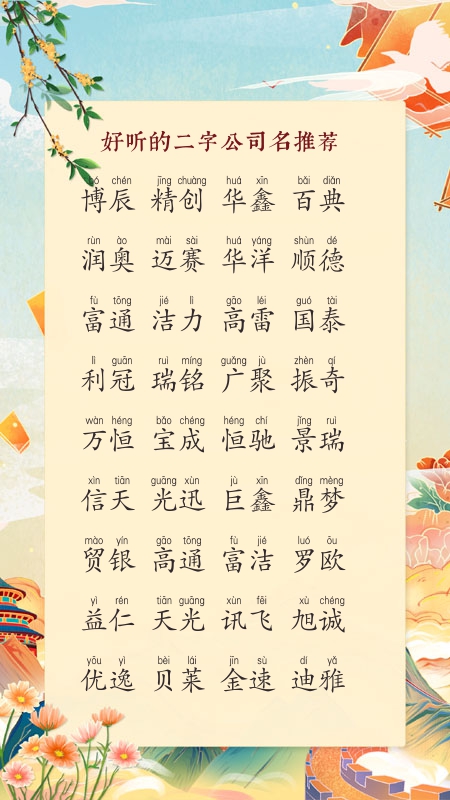 好听的二字公司名推荐
bó chén jīng chuàng huá xīn bǎi diǎn
博辰 精创 华鑫 百典
rùn ào mài sài huá yáng shùn dé
润奥 迈赛 华洋 顺德
fù tōng jié lì gāo léi guó tài
富通 洁力 高雷 国泰
lì guān ruì míng guǎng jù zhèn qí
利冠 瑞铭 广聚 振奇
wàn héng bǎo chéng héng chí jǐng ruì
万恒 宝成 恒驰 景瑞
xìn tiān guāng xùn jù xīn dǐng mèng
信天 光迅 巨鑫 鼎梦
mào yín gāo tōng fù jié luó ōu
贸银 高通 富洁 罗欧
yì rén tiān guāng xùn fēi xù chéng
益仁 天光 讯飞 旭诚
yōu yì bèi lái jīn sù dí yǎ
优逸 贝莱 金速 迪雅